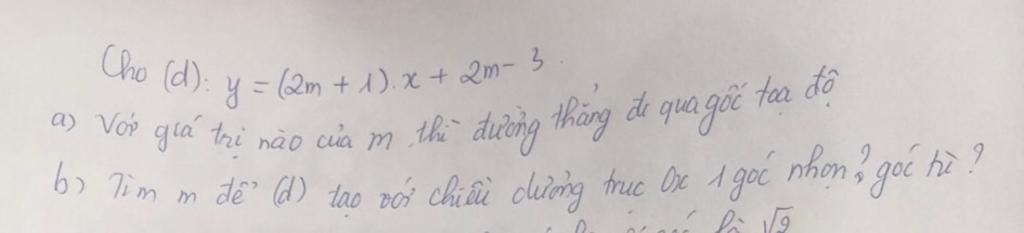 Cho (d): y = (2m + 1).x + 2m - 3.
a) Với giá trị nào của m thì đường thẳng đi qua gốc tọa độ
b) Tìm m để (d) tạo với chiều dương trục Ox 1 góc nhọn? góc tù?
là √2